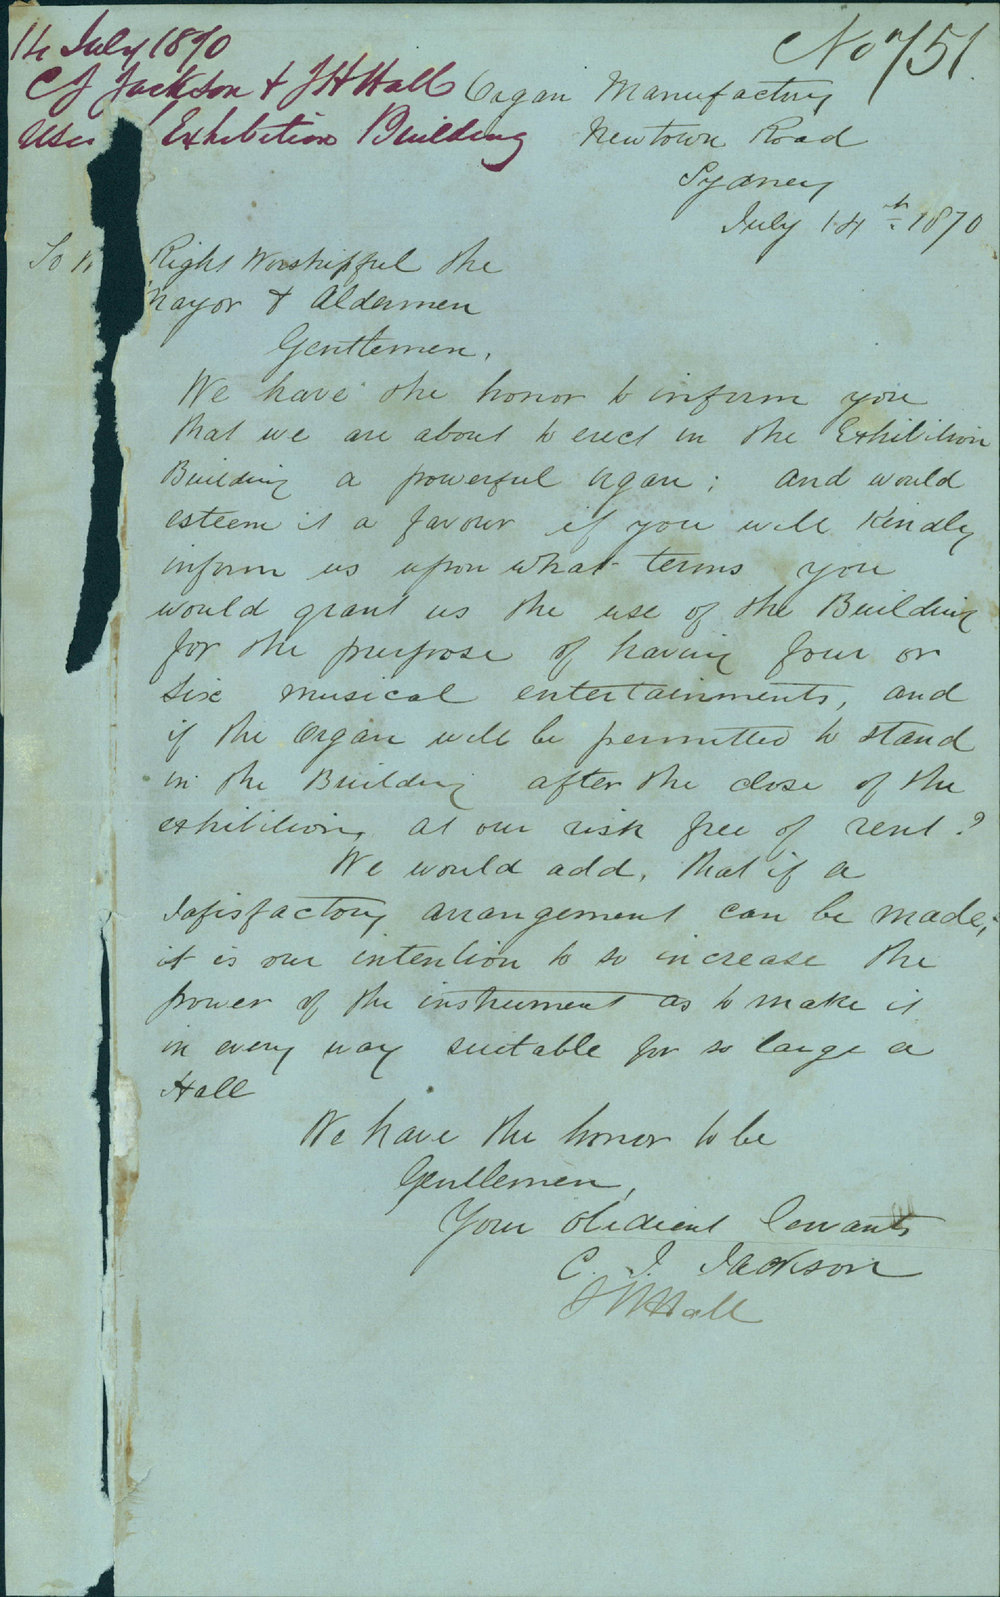 14 July 1870
No 751.
C J Jackson & J H Hall
Use Exhibition Building
Organ Manufactory
Newtown Road
Sydney
July 14th 1870
To Right Worshipful the
Mayor & Aldermen
Gentlemen,
We have the honor to inform you
that we are about to erect in the Exhibition
Building a powerful organ; and would
esteem it a favour if you will Kindly
inform us upon what terms you
would grant us the use of the Building
for the purpose of having four or
six musical entertainments, and
if the Organ will be permitted to stand
in the Building after the close of the
exhibition, at our risk free of rent?
We would add, that if a
satisfactory arrangement can be made,
it is our intention to so increase the
power of the instrument as to make it
in every way suitable for so large a
Hall
We have the honor to be
Gentlemen,
Your obedient Servants
C. J. Jackson
J H Hall